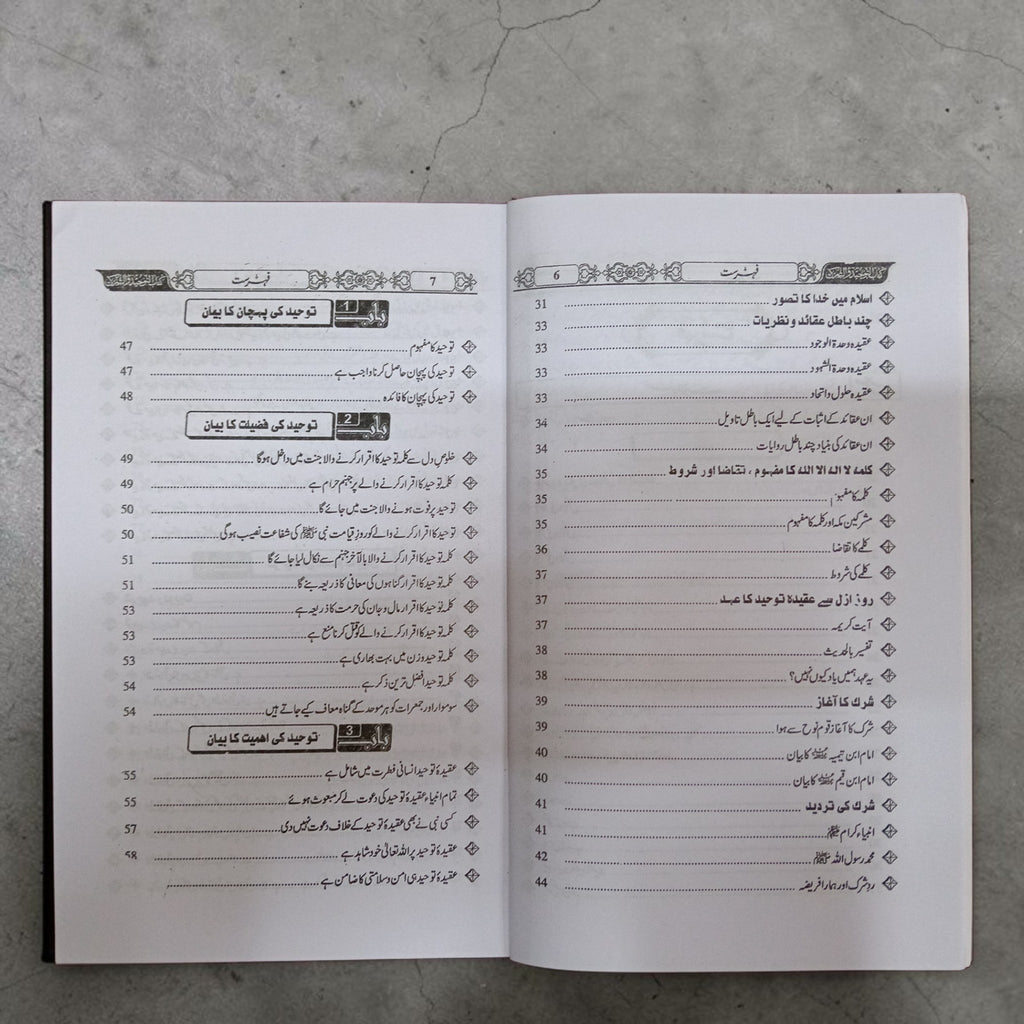 6 فہرست کتاب التوحید والشرک
اسلام میں خدا کا تصور 31
چند باطل عقائد و نظریات 33
عقیدہ وحدۃ الوجود 33
عقیدہ وحدۃ الشہود 33
عقیدہ حلول و اتحاد 33
ان عقائد کے اثبات کے لیے ایک باطل تاویل 34
ان عقائد کی بنیاد چند باطل روایات 34
کلمہ لا الہ الا اللہ کا مفہوم ، تقاضا اور شروط 35
کلمہ کا مفہوم 35
مشرکین مکہ اور کلمہ کا مفہوم 35
کلمے کا تقاضا 36
کلمے کی شروط 37
روز ازل سے عقیدۂ توحید کا عہد 37
آیت کریمہ 37
تفسیر بالحدیث 38
یہ عہد ہمیں یاد کیوں نہیں؟ 38
شرک کا آغاز 39
شرک کا آغاز قوم نوح سے ہوا 39
امام ابن تیمیہ رحمہ اللہ کا بیان 40
امام ابن قیم رحمہ اللہ کا بیان 40
شرک کی تردید 41
انبیاء کرام علیہم السلام 41
محمد رسول اللہ ﷺ 42
رد شرک اور ہمارا فریضہ 44
کتاب التوحید والشرک فہرست 7
باب 1 توحید کی پہچان کا بیان
توحید کا مفہوم 47
توحید کی پہچان حاصل کرنا واجب ہے 47
توحید کی پہچان کا فائدہ 48
باب 2 توحید کی فضیلت کا بیان
خلوص دل سے کلمہ توحید کا اقرار کرنے والا جنت میں داخل ہوگا 49
کلمہ توحید کا اقرار کرنے والے پر جہنم حرام ہے 49
توحید پر فوت ہونے والا جنت میں جائے گا 50
توحید کا اقرار کرنے والے کو روز قیامت نبی ﷺ کی شفاعت نصیب ہوگی 50
کلمہ توحید کا اقرار کرنے والا بالآخر جہنم سے نکال لیا جائے گا 51
کلمہ توحید کا اقرار گناہوں کی معافی کا ذریعہ بنے گا 51
کلمہ توحید کا اقرار مال و جان کی حرمت کا ذریعہ ہے 53
کلمہ توحید کا اقرار کرنے والے کو قتل کرنا منع ہے 53
کلمہ توحید وزن میں بہت بھاری ہے 53
کلمہ توحید افضل ترین ذکر ہے 54
سوموار اور جمعرات کو ہر موحد کے گناہ معاف کیے جاتے ہیں 54
باب 3 توحید کی اہمیت کا بیان
عقیدۂ توحید انسانی فطرت میں شامل ہے 55
تمام انبیاء عقیدۂ توحید کی دعوت لے کر مبعوث ہوئے 55
کسی نبی نے بھی عقیدۂ توحید کے خلاف دعوت نہیں دی 57
عقیدۂ توحید پر اللہ تعالیٰ خود شاہد ہے 58
عقیدۂ توحید ہی امن و سلامتی کا ضامن ہے